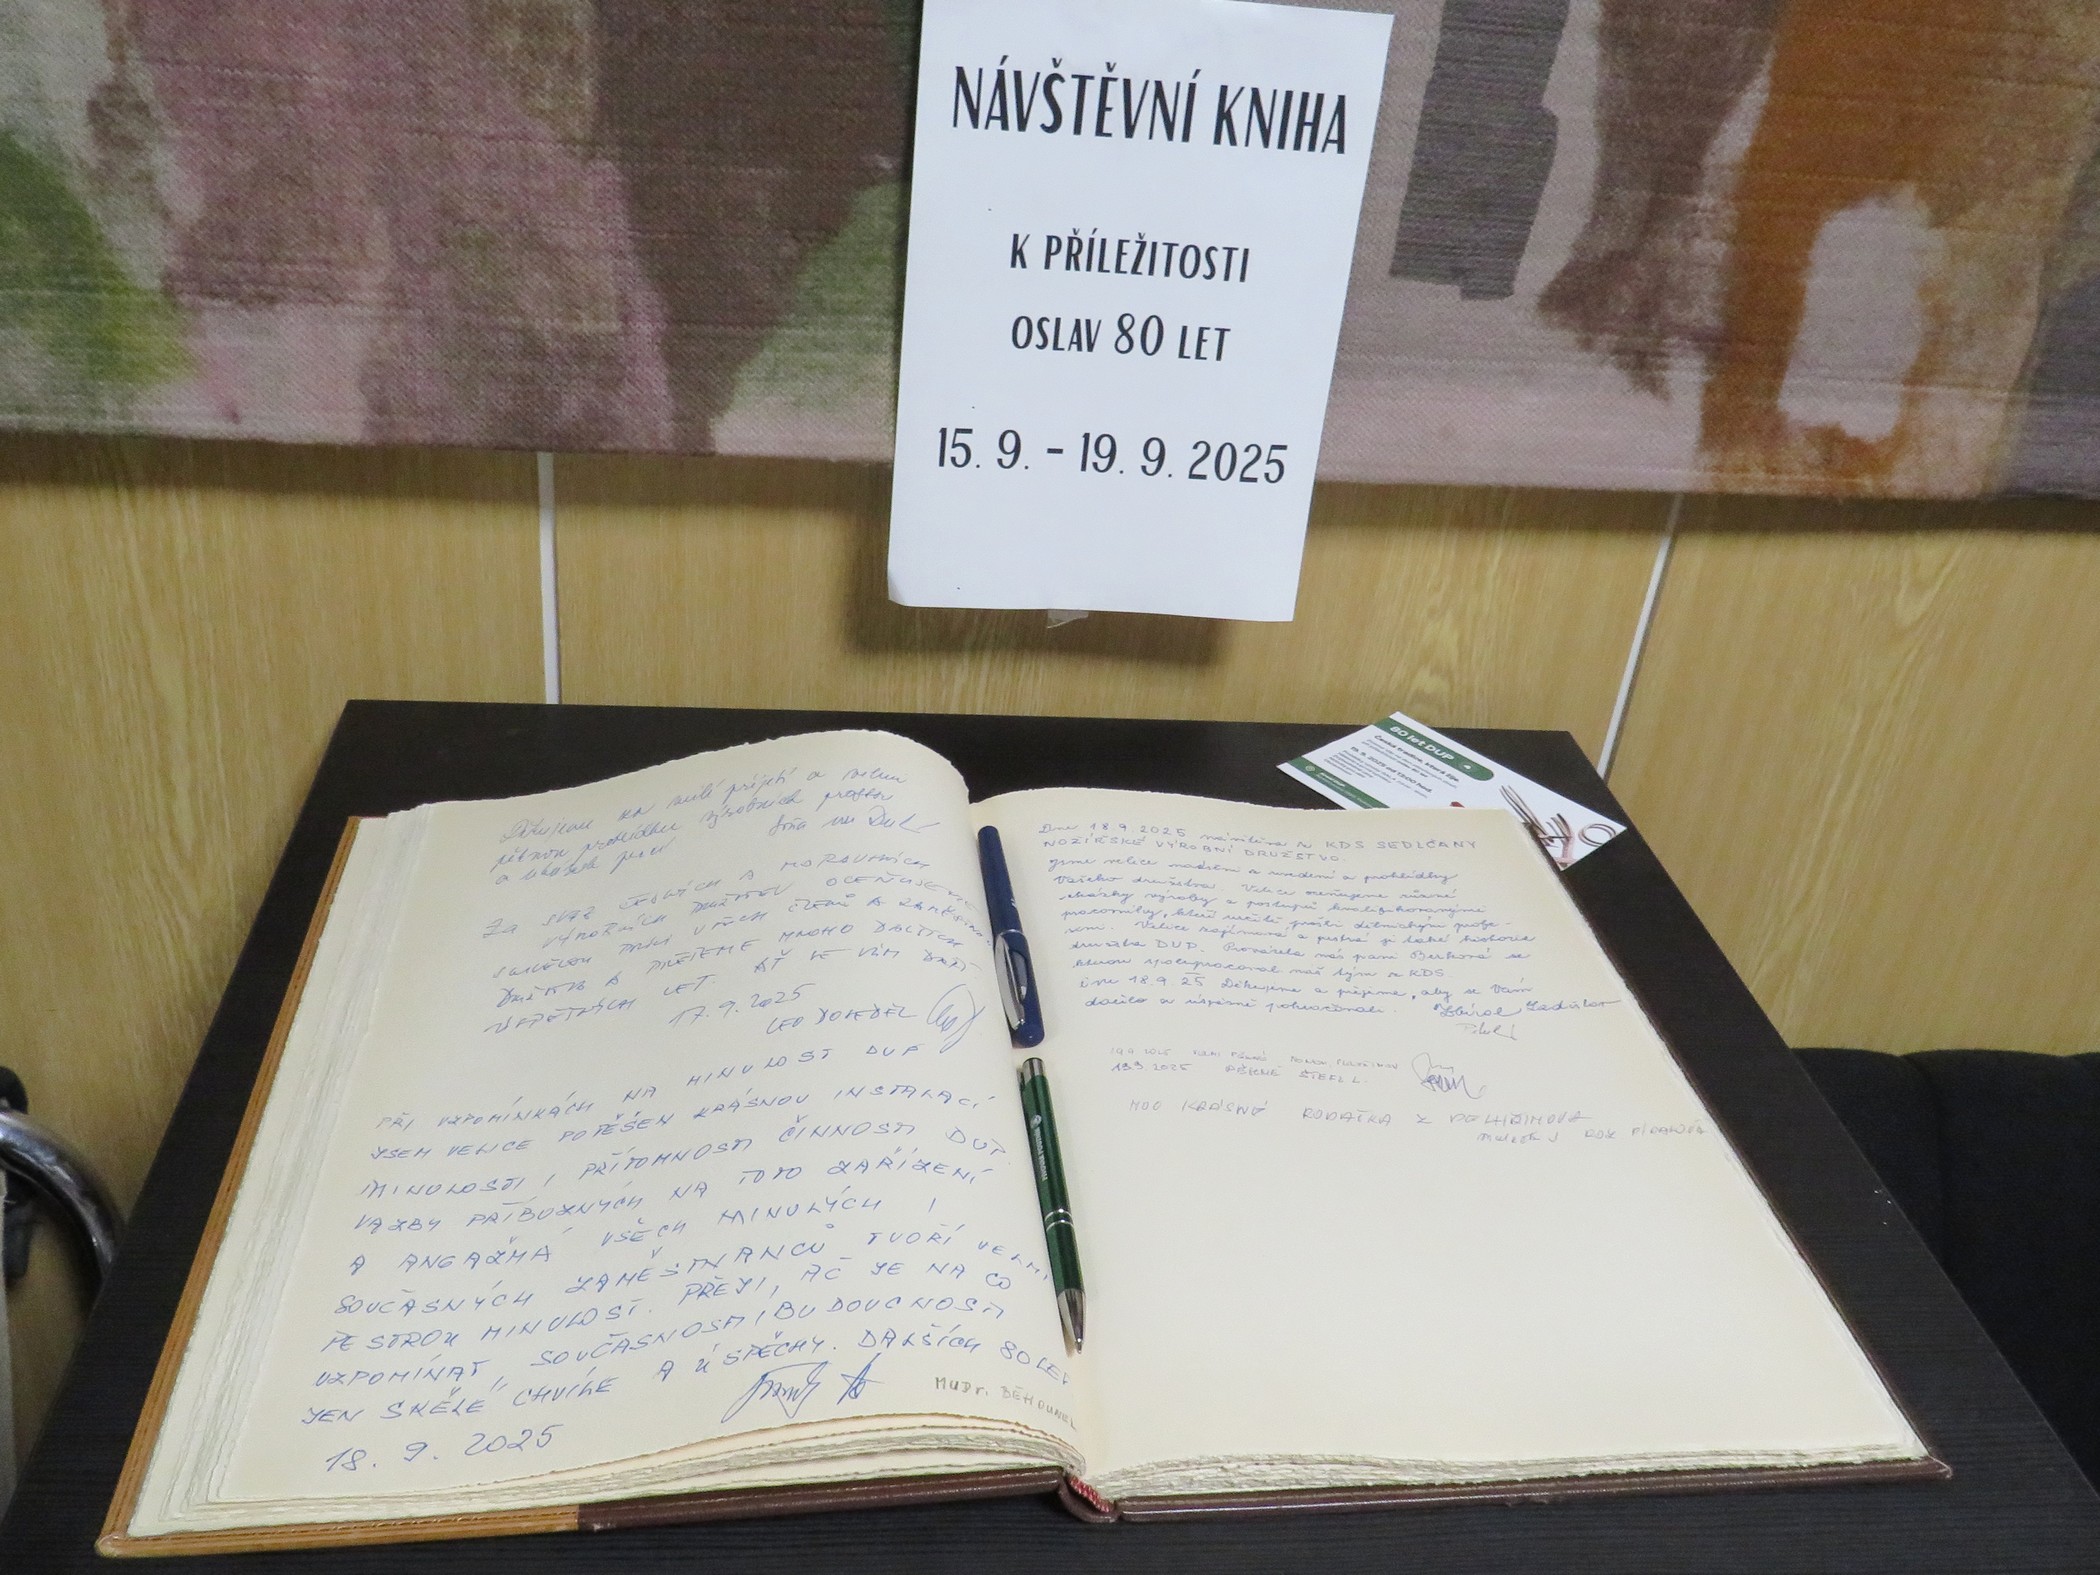 NÁVŠTĚVNÍ KNIHA
K PŘÍLEŽITOSTI
OSLAV 80 LET
15. 9. - 19. 9. 2025
80 let DUP
Česká tradice, která žije
Děkujeme za milé přijetí a velmi
pěknou prohlídku výrobních prostor
a ukázek prací
ZA SVAZ ČESKÝCH A MORAVSKÝCH
VÝROBNÍCH DRUŽSTEV OCEŇUJEME
PRÁCI VŠECH ČLENŮ A
DRUŽSTVA A PŘEJEME MNOHO DALŠÍCH
ÚSPĚŠNÝCH LET. AŤ SE VÁM DAŘÍ
17. 9. 2025
LEO DOSEDĚL
PŘI VZPOMÍNKÁCH NA MINULOST DUP
JSEM VELICE POTĚŠEN KRÁSNOU INSTALACÍ
MINULOSTI I PŘÍTOMNOSTI ČINNOSTI DUP.
VAZBY PŘÍBUZNÝCH NA TOTO ZAŘÍZENÍ
A ANGAŽMÁ VŠECH MINULÝCH I
SOUČASNÝCH ZAMĚSTNANCŮ TVOŘÍ VELMI
PESTROU MINULOST. PŘEJI, AČ JE NA CO
VZPOMÍNAT, SOUČASNOSTI I BUDOUCNOSTI
JEN SKĚLÉ CHVÍLE A ÚSPĚCHY. DALŠÍCH 80 LET
18. 9. 2025
MUDr. BĚHOUNEK
Dne 18.9.2025 návštěva z KDS SEDLČANY
NOŽÍŘSKÉ VÝROBNÍ DRUŽSTVO.
jsme velice nadšeni z uvedení a prohlídky
Vašeho družstva. Velice oceňujeme různé
ukázky výroby a postupů kvalifikovanými
pracovníky, kteří určitě prošli dětnickými profe-
semi. Velice zajímavá a pestrá je také historie
družstva DUP. Provázela nás paní Berková se
kterou spolupracoval náš tým z KDS
dne 18.9.25. Děkujeme a přejeme, aby se Vám
dařilo a úspěšně pokračovali. Zbíral Ladislav
19.9.2025 VELMI PĚKNÉ
19.9.2025 PĚKNÉ
MOC KRÁSNÉ RODAČKA Z PELHŘIMOVA